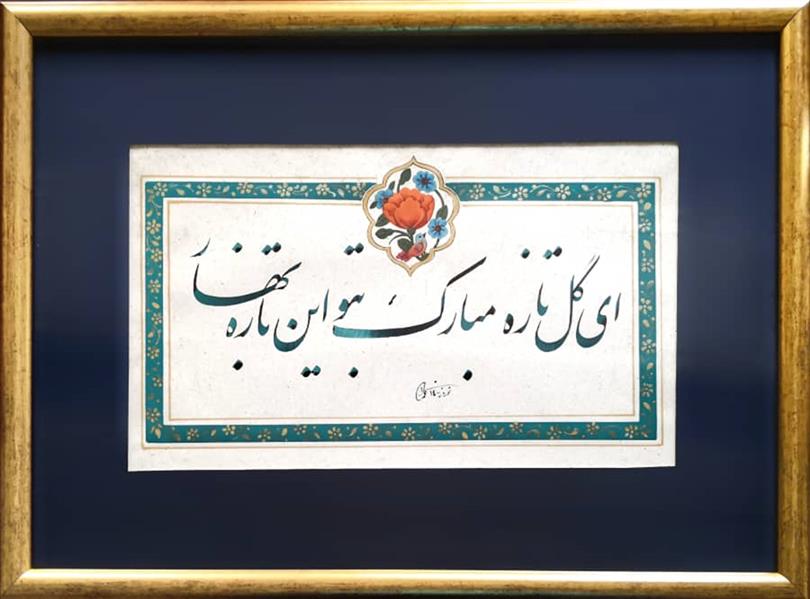 ای گل تازه مبارک بتو این تازه بهار